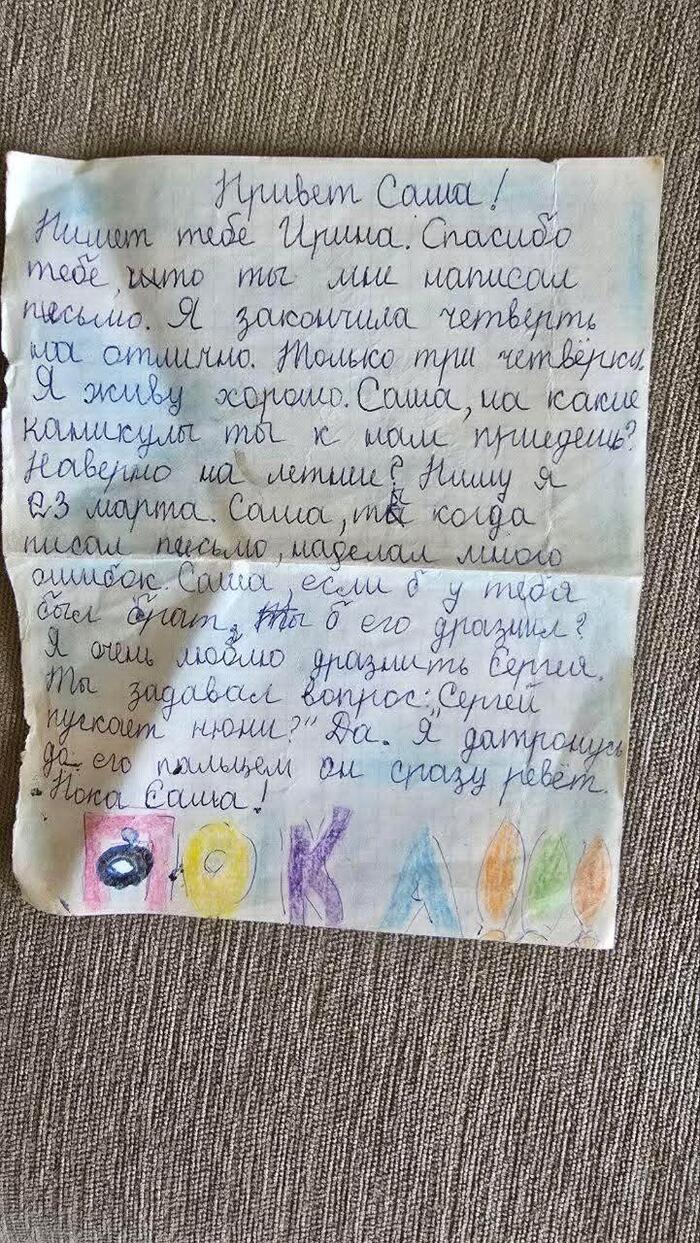 Привет Саша!
Пишет тебе Ирина. Спасибо
тебе, что ты мне написал
письмо. Я закончила четверть
на отлично. Только три четвёрки.
Я живу хорошо. Саша, на какие
каникулы ты к нам приедешь?
Наверно на летние? Пишу я
23 марта. Саша, ты когда
писал письмо, наделал много
ошибок. Саша, если б у тебя
был брат, ты б его дразнил?
Я очень люблю дразнить Сергея.
Ты задавал вопрос: „Сергей
пускает нюни?" Да. Я датронусь
до его пальцем он сразу ревёт.
Пока Саша!
ПОКА!!!